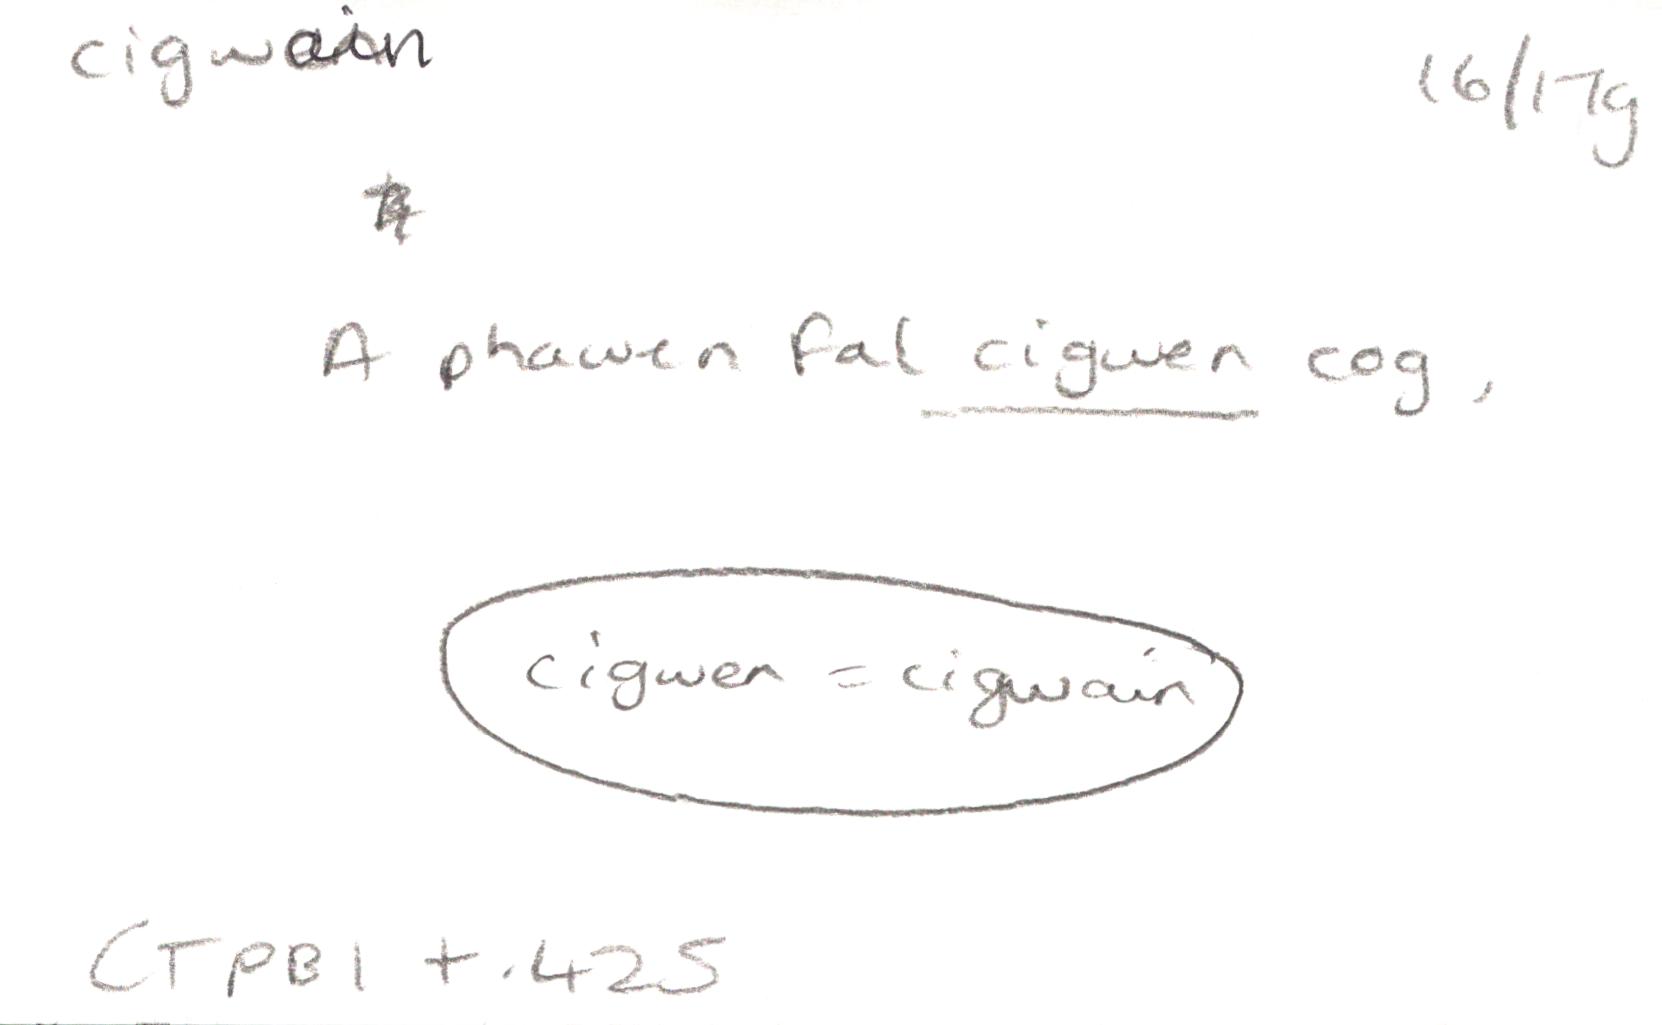 cigwain
16/17g
A phawen fal cigwen cog,
cigwen = cigwain
CTPB1 t.425